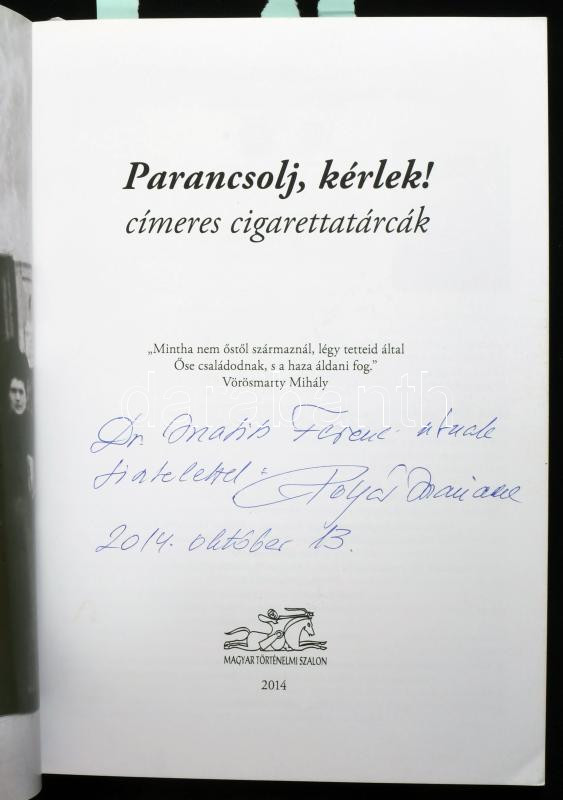 Parancsolj, kérlek!
címeres cigarettatárcák
„Mintha nem őstől származnál, légy tetteid által
Őse családodnak, s a haza áldani fog.”
Vörösmarty Mihály
darabanth
Dr. Ferenc úrnak
tisztelettel:
2014. október 13.
MAGYAR TÖRTÉNELMI SZALON
2014